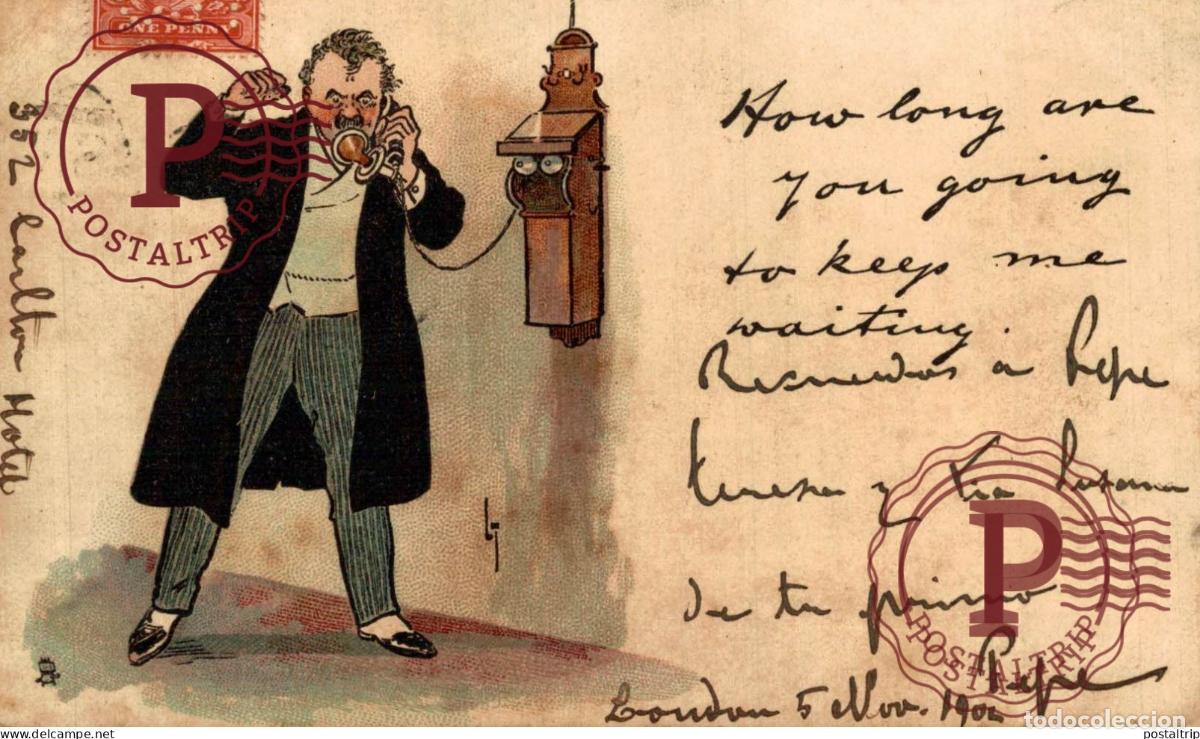 ONE PENNY
352 Carlton Hotel
How long are
you going
to keep me
waiting.
Recuerdos a Pepe
Teresa y tia Susana
de tu primo
Pepe
London 5 Nov. 190
P
POSTALTRIP
P
POSTALTRIP
POSTALTRIP
todocoleccion
postaltrip